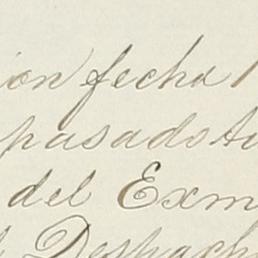 ion fecha 1
pasado tu
del Exm
l Despach